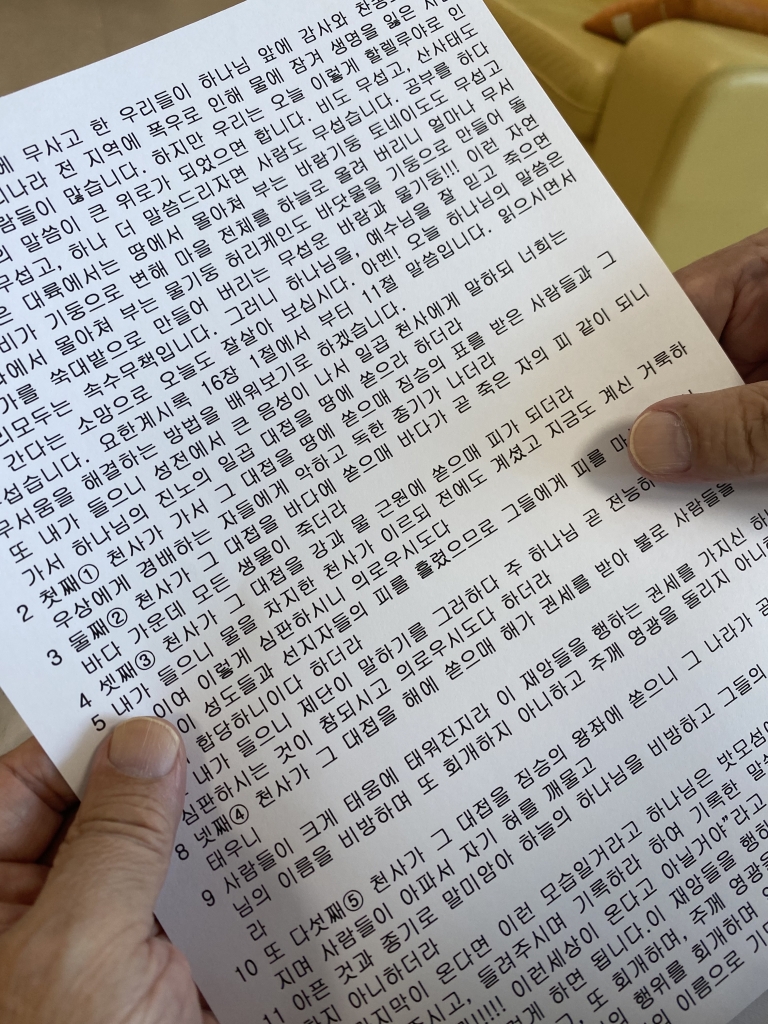 무사고 한 우리들이 하나님 앞에 감사와
전 지역에 폭우로 인해 물에 잠겨 생명을 잃은
많습니다. 하지만 우리는 오늘 이렇게 할렐루야로 인
말씀이 큰 위로가 되었으면 합니다. 비도 무섭고, 산사태도
무섭고, 하나 더 말씀드리자면 사람도 무섭습니다. 공부를 하다
대륙에서는 땅에서 몰아쳐 부는 바람기둥 토네이도도 무섭고
기둥으로 변해 마을 전체를 하늘로 올려 버리니 얼마나 무서
몰아쳐 부는 물기둥 허리케인도 바닷물을 기둥으로 만들어 돌
쑥대밭으로 만들어 버리는 무서운 바람과 물기둥!!! 이런 자연
속수무책입니다. 그러니 하나님을, 예수님을 잘 믿고 죽으면
간다는 소망으로 오늘도 잘살아 보십시다. 아멘! 오늘 하나님의 말씀은
요한계시록 16장 1절에서 부터 11절 말씀입니다. 읽으시면서
무서움을 해결하는 방법을 배워보기로 하겠습니다.
또 내가 들으니 성전에서 큰 음성이 나서 일곱 천사에게 말하되 너희는
가서 하나님의 진노의 일곱 대접을 땅에 쏟으라 하더라
2 첫째① 천사가 가서 그 대접을 땅에 쏟으매 짐승의 표를 받은 사람들과 그
우상에게 경배하는 자들에게 악하고 독한 종기가 나더라
3 둘째② 천사가 그 대접을 바다에 쏟으매 바다가 곧 죽은 자의 피 같이 되니
바다 가운데 모든 생물이 죽더라
4 셋째③ 천사가 그 대접을 강과 물 근원에 쏟으매 피가 되더라
5 내가 들으니 물을 차지한 천사가 이르되 전에도 계셨고 지금도 계신 거룩하
이여 이렇게 심판하시니 의로우시도다
성도들과 선지자들의 피를 흘렸으므로 그들에게 피를
합당하니이다 하더라
내가 들으니 제단이 말하기를 그러하다 주 하나님 곧
심판하시는 것이 참되시고 의로우시도다 하더라
8 넷째④ 천사가 그 대접을 해에 쏟으매 해가 권세를 받아 불로 사람들을
태우니
9 사람들이 크게 태움에 태워진지라 이 재앙들을 행하는 권세를 가지신
님의 이름을 비방하며 또 회개하지 아니하고 주께 영광을 돌리지 아니하
라
10 또 다섯째⑤ 천사가 그 대접을 짐승의 왕좌에 쏟으니 그 나라가
지며 사람들이 아파서 자기 혀를 깨물고
11 아픈 것과 종기로 말미암아 하늘의 하나님을 비방하고 그들의
하지 아니하더라
온다면 이런 모습일거라고 하나님은
들려주시며 기록하라 하여 기록한
이런세상이 온다고 아닐거야"라고
하면 됩니다.이 재앙들을
또 회개하며, 주께
행위를 회개하며
이름으로